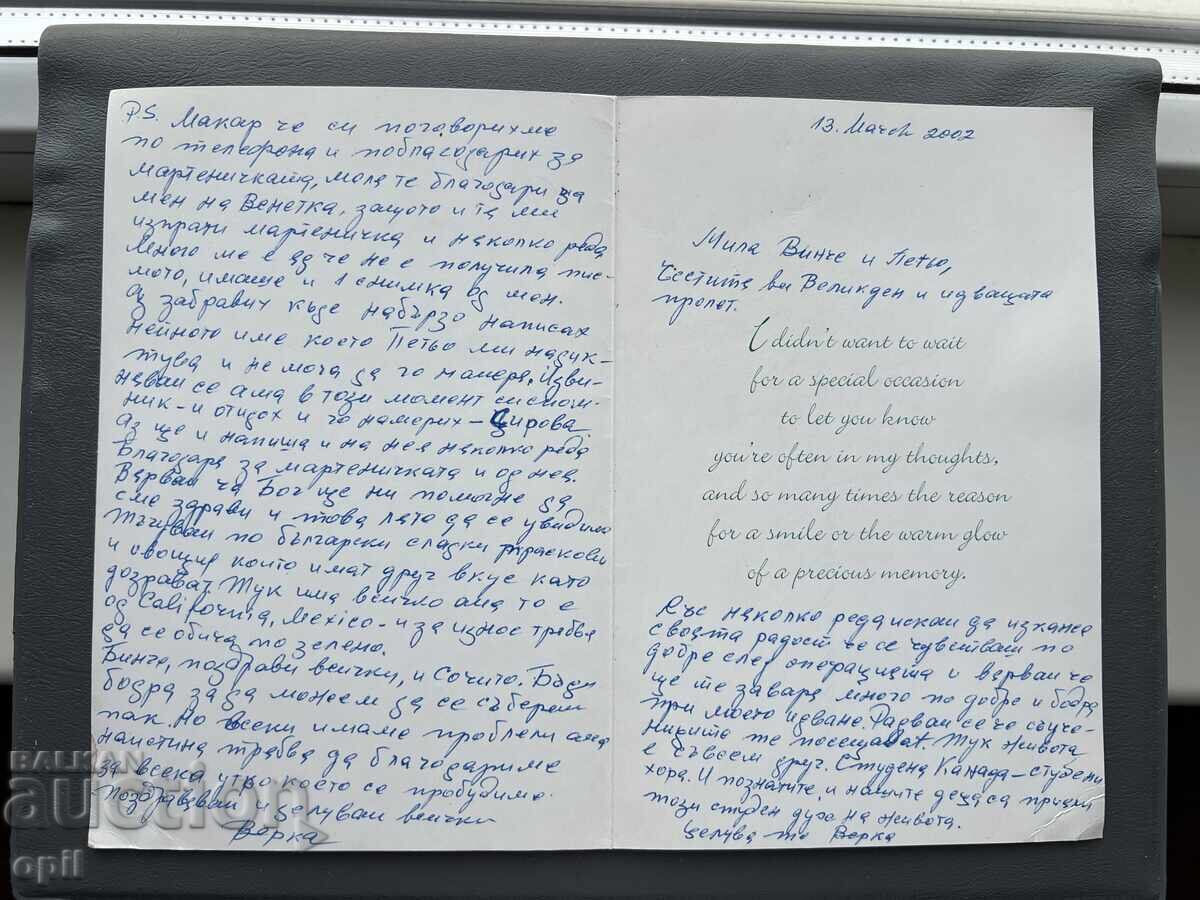 P.S. Макар че си поговорихме
по телефона и поблагодарих за
мартеничката, моля те благодари за
мен на Венетка, защото и тя ми
изпрати мартеничка и няколко реда
Много ме е яд че не е получила пис-
мото, имаше и 1 снимка од мен.
Аз забравих къде набързо написах
нейното име което Петьо ми издик-
тува и не мога да го намеря. Изви-
нявай се ама в този момент си спом-
них - и отидох и го намерих - Цирова
Аз ще и напиша и на нея няколко реда
Благодаря за мартеничката и од нея.
Вярвам ча Бог ще ни помогне да
сме здрави и това лято да се увидиме
Тъгувам по български сладки праскови
и овощия които имат друг вкус като
дозрават. Тук има всичко ама то е
од California, Mexico - и за износ требва
да се обича по зелено.
Винче, поздрави всички, и Сочито. Бъди
бодра за да можем да се съберем
пак. Но всеки имаме проблели ама
наистина трябва да благодариме
за всека утро което се пробудиме.
Поздравявам и целувам всички
Верка
13. March 2002
Мила Винче и Петьо,
Честита ви Великден и идващата
пролет.
I didn't want to wait
for a special occasion
to let you know
you're often in my thoughts,
and so many times the reason
for a smile or the warm glow
of a precious memory.
Със няколко реда искам да изкажа
своята радост че се чувстваш по
добре след операцията и вярвам че
ще те заваря много по добре и бодра
при моето идване. Радвам се че съуче-
ничките те посещават. Тук живота
е съвсем друг. Студена Канада - студени
хора. И познатите, и нашите деца са приели
този студен дух на живота.
Целува те Верка
BALKAN
auction
opil